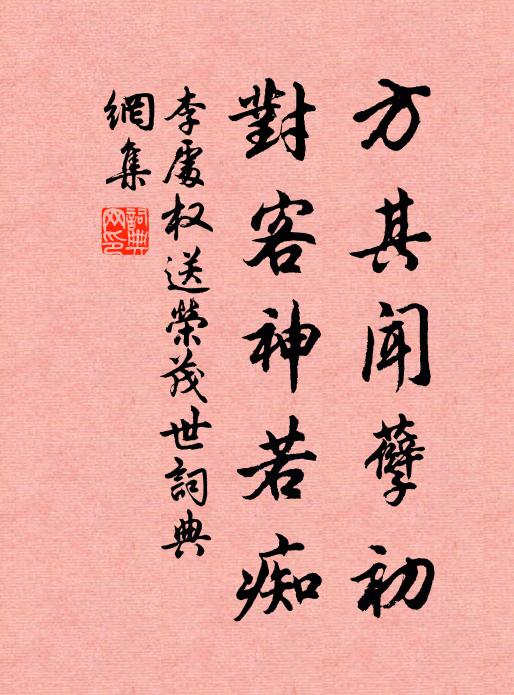 方其聞孽初
對客神若痴
李處权送榮茂世詞典
網集
詞典網印